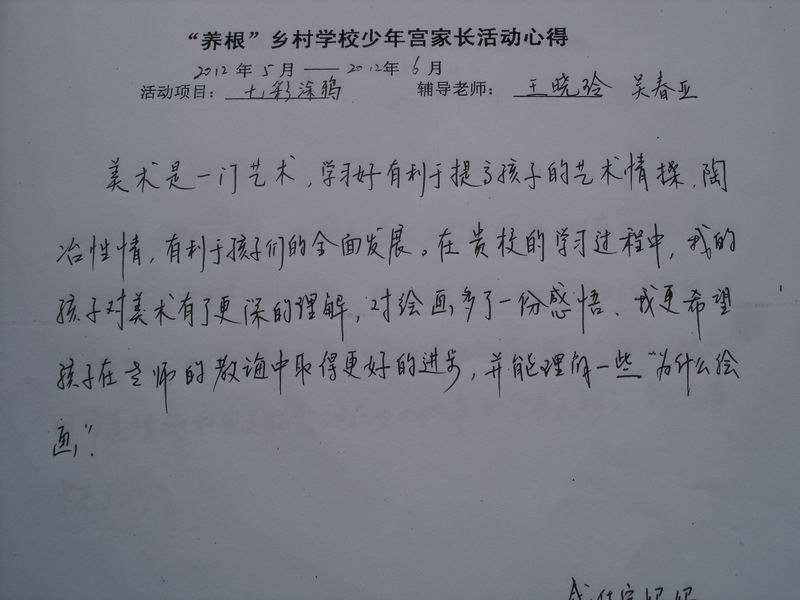 “养根”乡村学校少年宫家长活动心得
2012年5月——2012年6月
活动项目：七彩涂鸦 辅导老师：王晓玲 吴春亚
美术是一门艺术，学习好有利于提高孩子的艺术情操，陶
冶性情，有利于孩子们的全面发展。在贵校的学习过程中，我的
孩子对美术有了更深的理解，对绘画多了一份感悟、我更希望
孩子在老师的教诲中取得更好的进步，并能理解一些“为什么绘
画”.